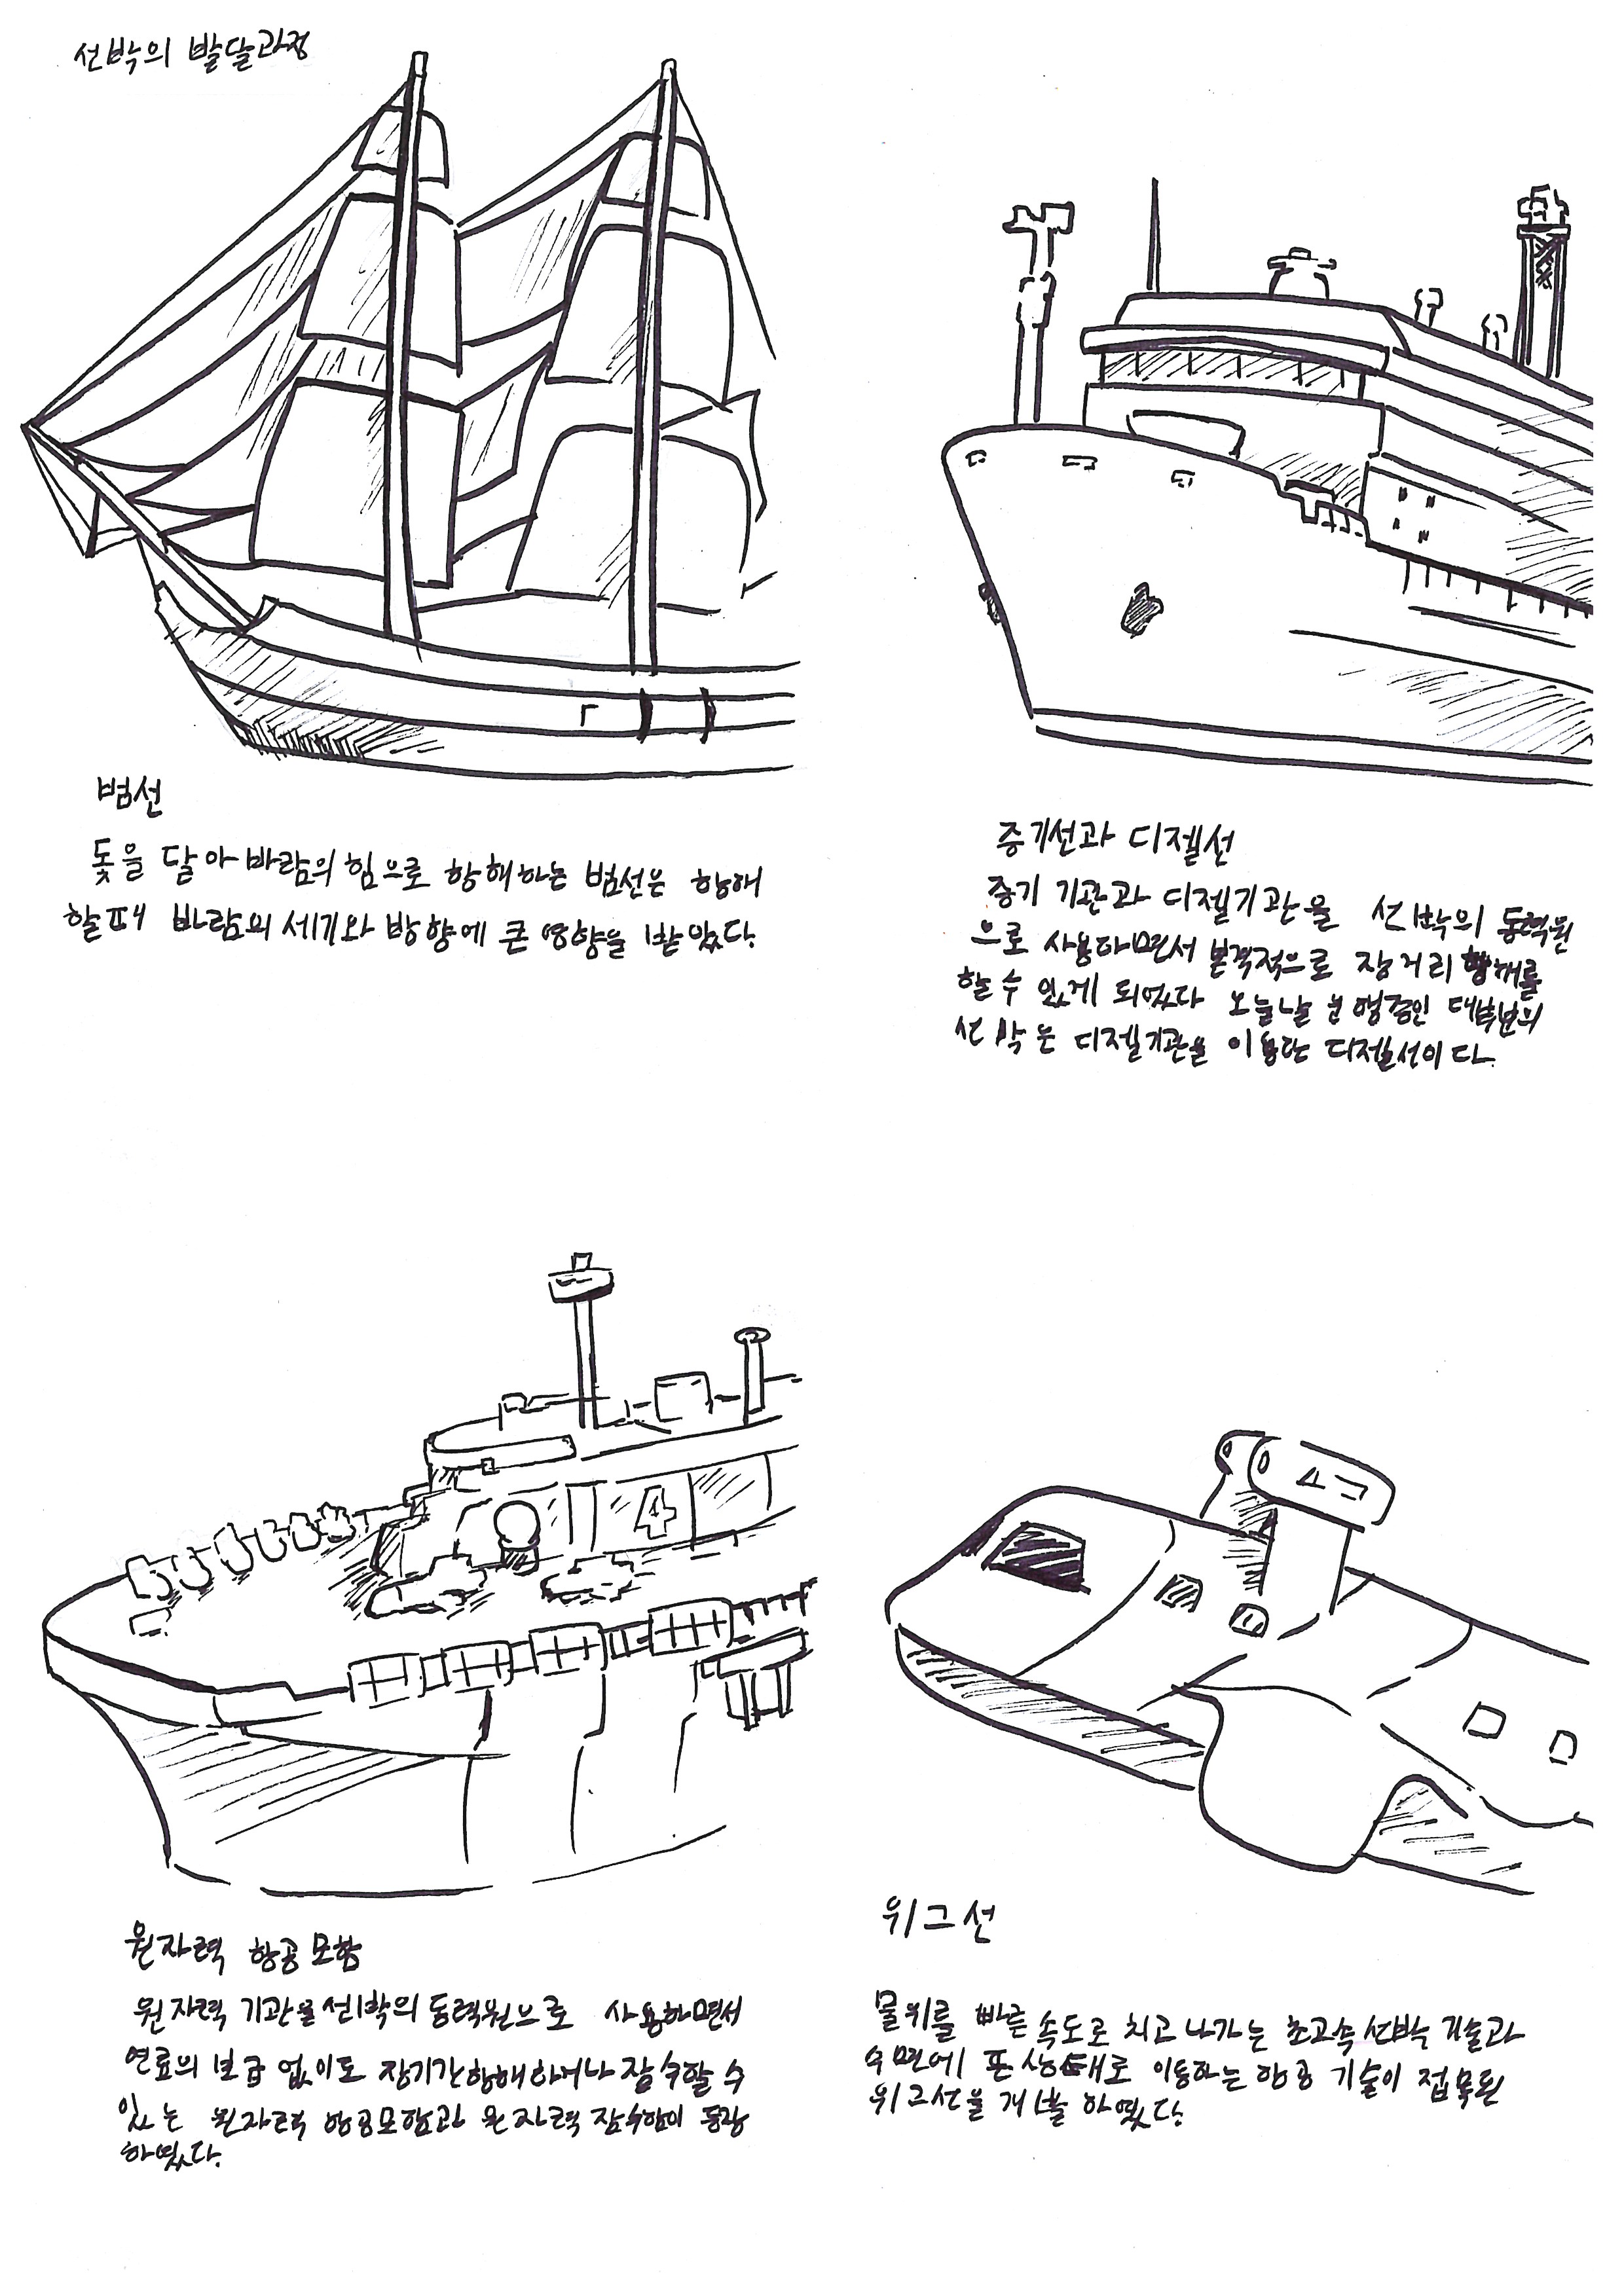 선박의 발달과정
범선
돛을 달아 바람의 힘으로 항해하는 범선은 항해
할때 바람의 세기와 방향에 큰 영향을 받았다.
증기선과 디젤선
증기 기관과 디젤기관을 선박의 동력원
으로 사용하면서 본격적으로 장거리 항해를
할 수 있게 되었다 오늘날 운행중인 대부분의
선박은 디젤기관을 이용한 디젤선이다.
4
원자력 항공모함
원자력 기관을 선박의 동력원으로 사용하면서
연료의 보급 없이도 장기간항해하거나 잠수할 수
있는 원자력 항공모함과 원자력 잠수함이 등장
하였다.
위그선
물위를 빠른 속도로 치고 나가는 초고속 선박 기술과
수면에 뜬 상태로 이동하는 항공 기술이 접목된
위그선을 개발 하였다.